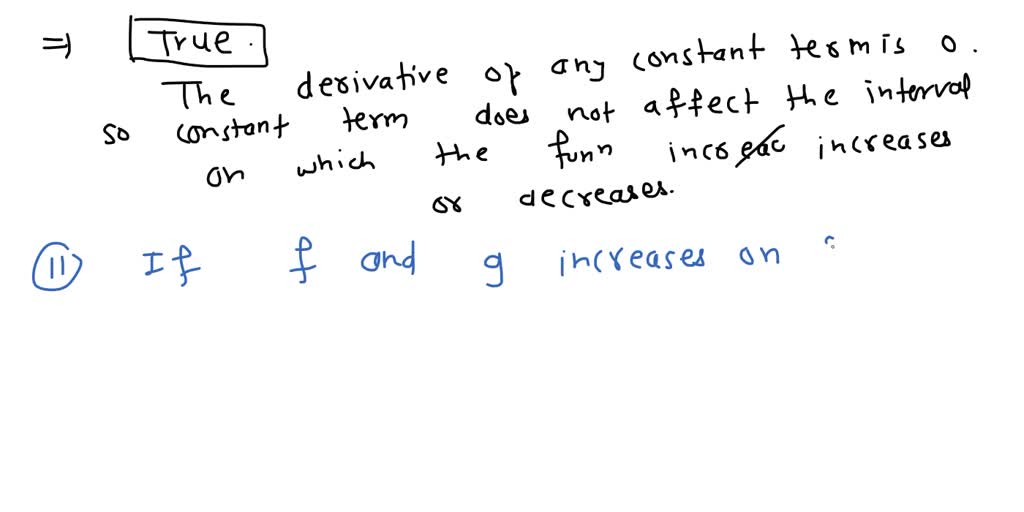 ⇒ True.
The derivative of any constant term is 0.
so constant term does not affect the interval
on which the funn increases
or decreases.
(11) If f and g increases on